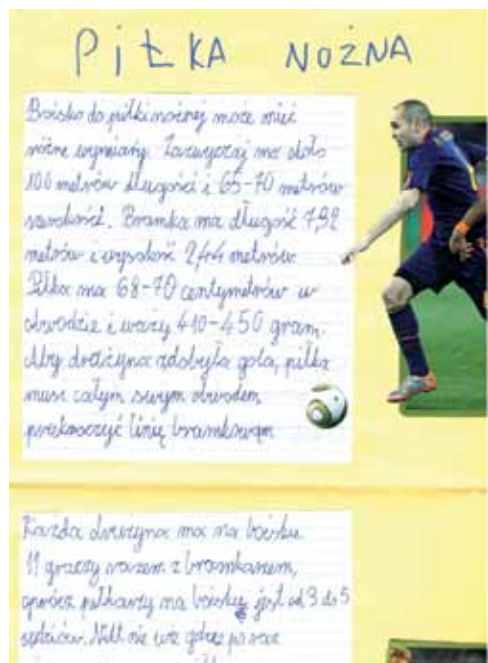 PiŁKA NOŻNA
Boisko do piłki nożnej może mieć
różne wymiary. Zazwyczaj ma około
100 metrów długości i 65-70 metrów
szerokości. Bramka ma długość 7,92
metrów i wysokość 2,44 metrów.
Piłka ma 68-70 centymetrów w
obwodzie i waży 410-450 gram.
Aby drużyna zdobyła gola, piłka
musi całym swym obwodem
przekroczyć linię bramkową
Każda drużyna ma na boisku
11 graczy razem z bramkarzem,
oprócz piłkarzy na boisku jest od 3 do 5
sędziów. Nikt nie